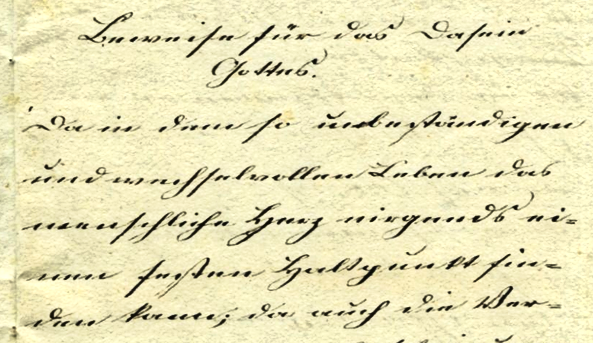 Beweise für das Dasein
Gottes.
Da in dem so unbeständigen
und wechselvollen Leben das
menschliche Herz nirgends ei-
nen festen Haltpunkt fin-
den kann; da auch die Ver-